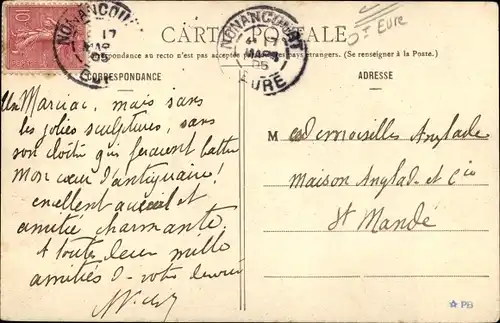 NONANCOURT
17
MARS
05
EURE
10
CARTE POSTALE
Dt Eure
Correspondance au recto n'est pas acceptée pays étrangers. (Se renseigner à la Poste.)
CORRESPONDANCE
ADRESSE
Un Marciac, mais sans
les jolies sculptures, sans
son cloître qui feraient battre
mon cœur d'antiquaire!
excellent accueil et
amitié charmante
à toutes deux mille
amitiés votre
M esdemoiselles Anglade
Maison Anglade et Cie
St Mandé
PB